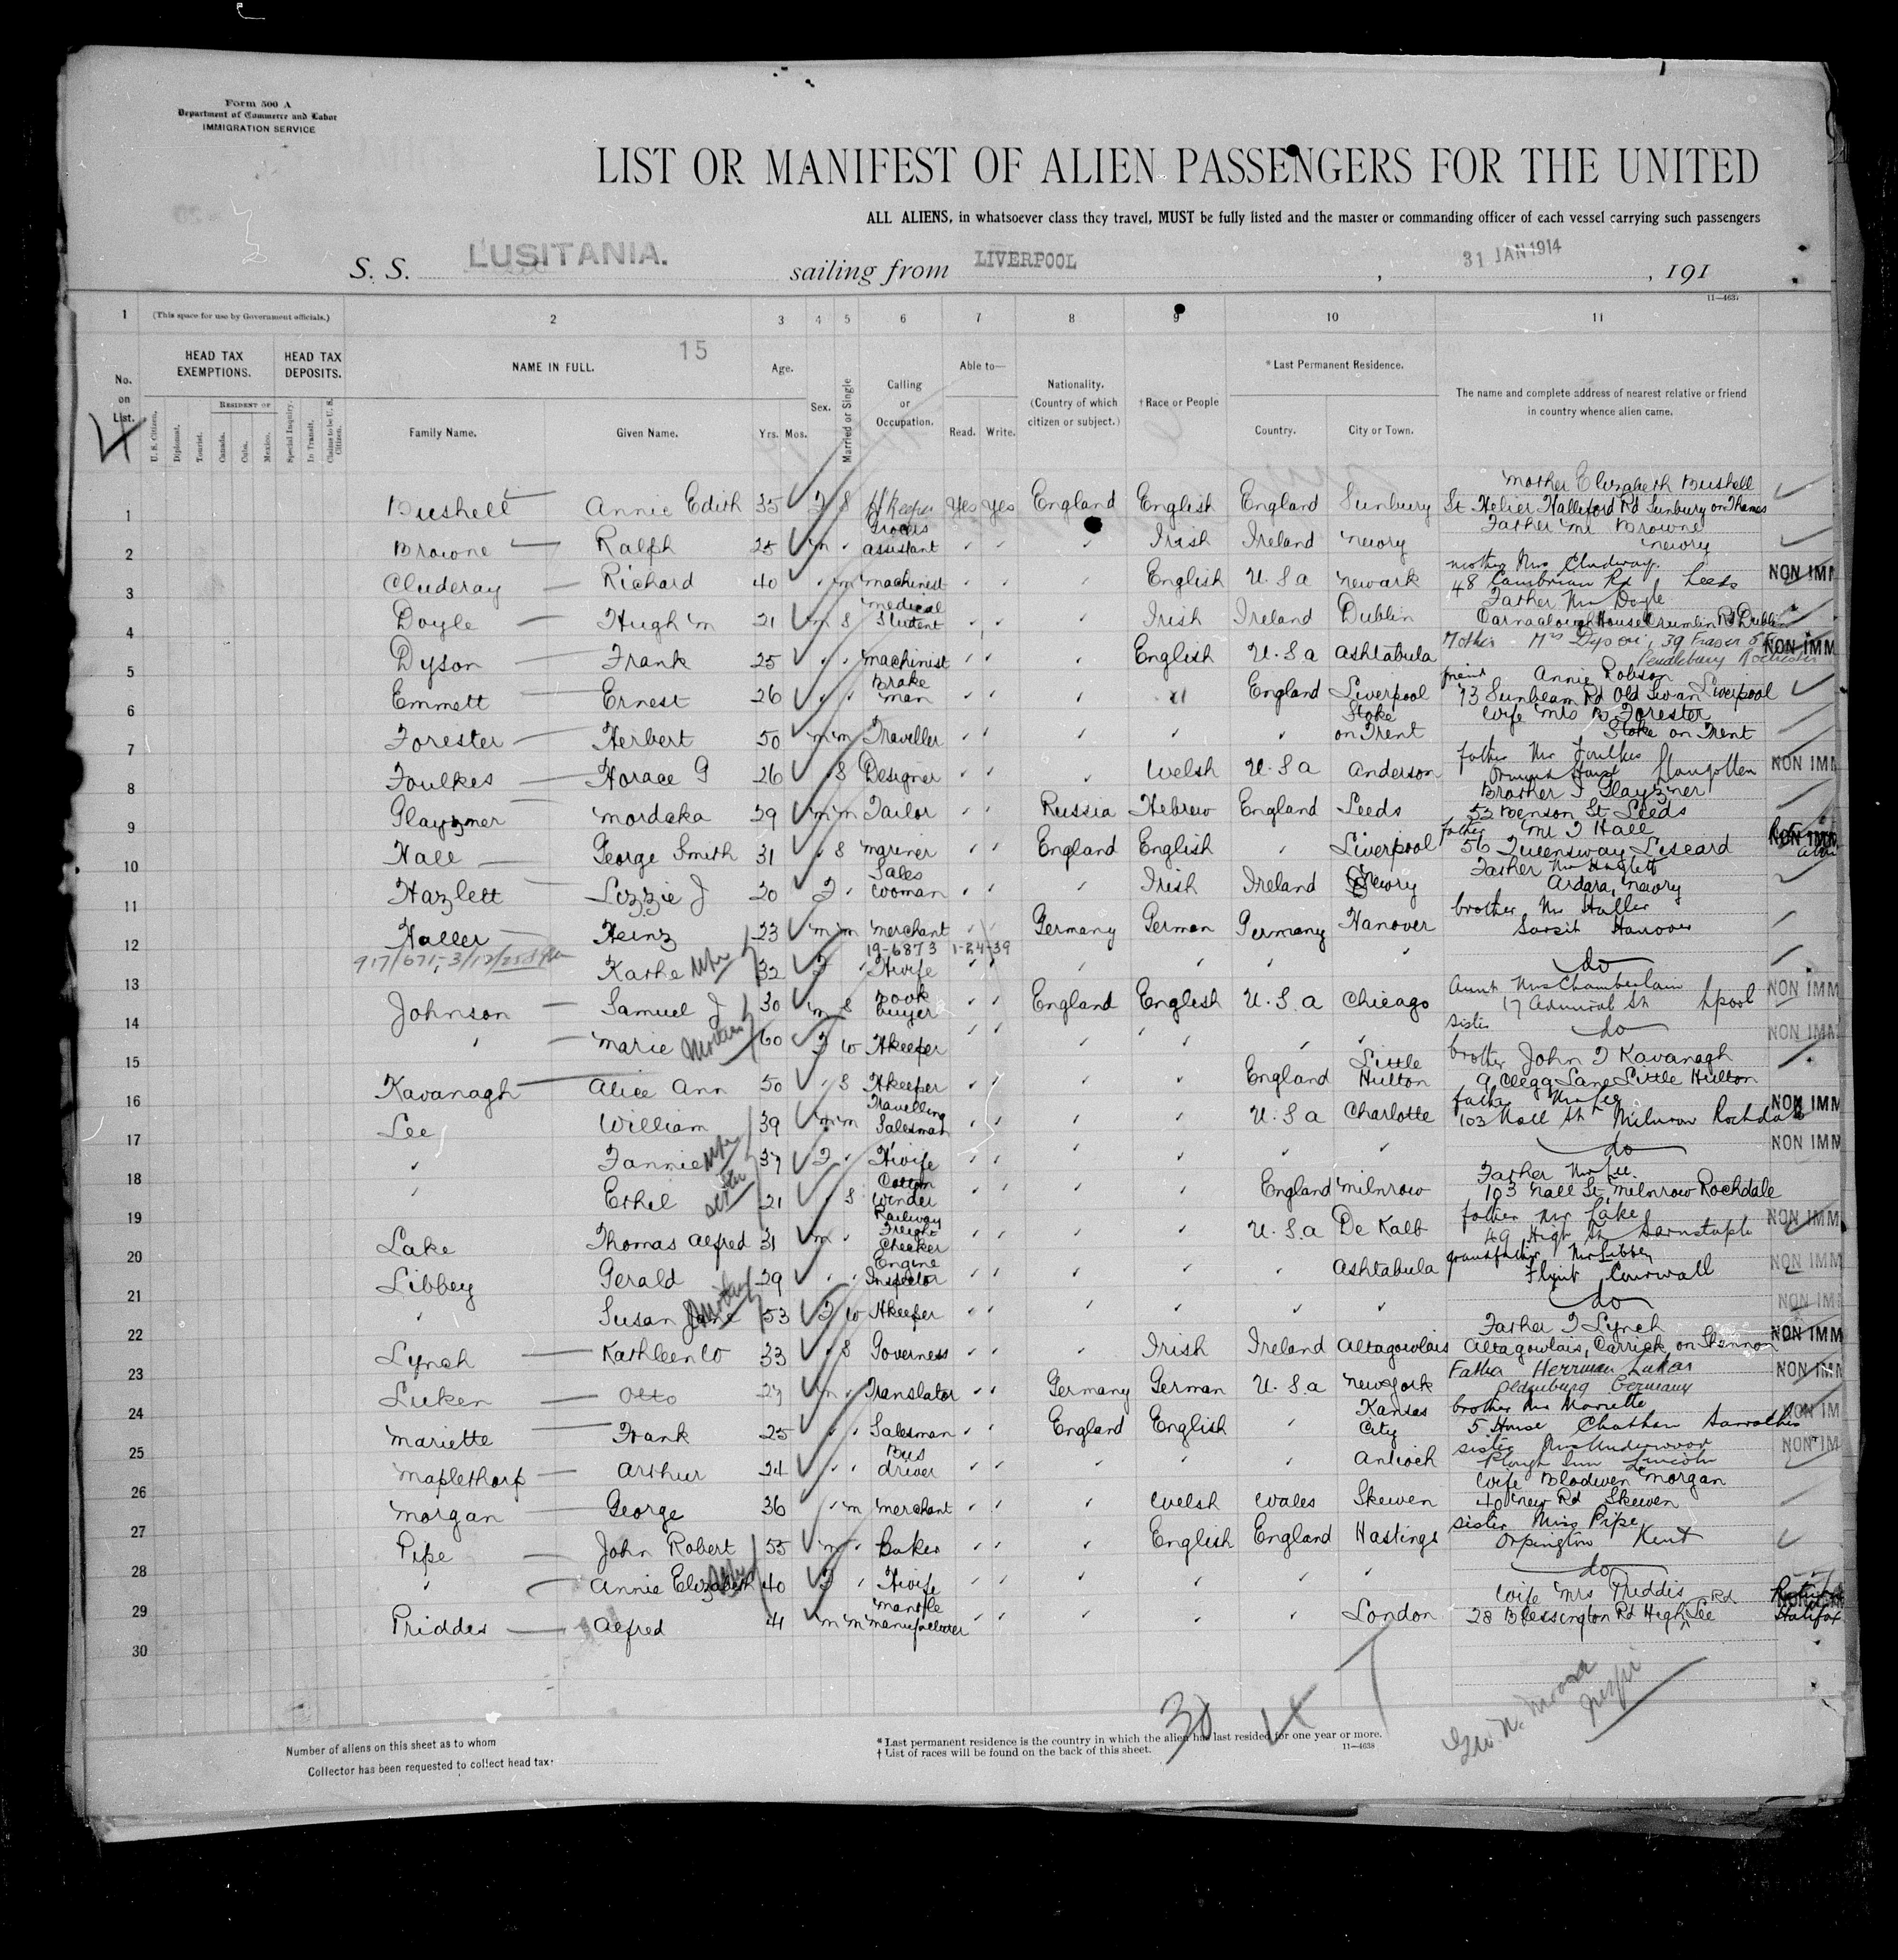 Form 500 A
Department of Commerce and Labor
IMMIGRATION SERVICE
LIST OR MANIFEST OF ALIEN PASSENGERS FOR THE UNITED
ALL ALIENS, in whatsoever class they travel, MUST be fully listed and the master or commanding officer of each vessel carrying such passengers
S. S. LUSITANIA. sailing from LIVERPOOL, 31 JAN 1914, 191
11—4637
1 (This space for use by Government officials.) 2 3 4 5 6 7 8 9 10 11
15
No. on List.
HEAD TAX EXEMPTIONS. HEAD TAX DEPOSITS.
U. S. Citizen. Diplomat. Tourist. RESIDENT OF Canada. Cuba. Mexico. Special Inquiry. In Transit. Claims to be U. S. Citizen.
NAME IN FULL. Family Name. Given Name.
Age. Yrs. Mos. Sex. Married or Single
Calling or Occupation.
Able to— Read. Write.
Nationality. (Country of which citizen or subject.)
†Race or People
*Last Permanent Residence. Country. City or Town.
The name and complete address of nearest relative or friend in country whence alien came.
1 Bushell Annie Edith 35 F S Hkeeper Yes Yes England English England Sunbury Mother Elizabeth Bushell St. Helier Halliford Rd Sunbury on Thames
2 Browne Ralph 25 m Grocers assistant Irish Ireland Newry Father Mr Browne Newry
3 Cluderay Richard 40 m machinist English U.S.a Newark mother Mrs 48 Cambrian Rd Leeds NON IMM
4 Doyle Hugh m 21 m S medical Student Irish Ireland Dublin Father Mr Doyle House Crumlin Rd Dublin
5 Dyson Frank 25 machinist English U.S.a Ashtabula Mother Mrs Dyson, 39 Fraser St Pendlebury NON IMM
6 Emmett Ernest 26 Brake man England Liverpool friend Annie Robson 73 Sunbeam Rd Old Swan Liverpool
7 Forester Herbert 50 m m Traveller Stoke on Trent Wife Mrs Forester Stoke on Trent
8 Foulkes Horace G 26 S Designer Welsh U.S.a Anderson father Mr Foulkes Llangollen NON IMM
9 Glayzner Mordaka 29 m m Tailor Russia Hebrew England Leeds Brother I Glayzner 52 Benson St Leeds
10 Hall George Smith 31 S mariner England English Liverpool father Mr T Hall 56 Queensway Liscard NON IMM
11 Hazlett Lizzie J 20 F Sales woman Irish Ireland Newry Father Mr Hazlett Ardara, Newry
12 Haller Heinz 23 m m merchant Germany German Germany Hanover brother Mr Haller Hanover
19-6873 1-24-39
13 Kathe wife 32 F Hwife do
14 Johnson Samuel J 30 m S book buyer England English U.S.a Chicago Aunt Mrs Chamberlain 17 Admiral St Lpool NON IMM
15 Marie mother 60 F w Hkeeper sister do NON IMM
16 Kavanagh Alice Ann 50 S Hkeeper England Little Hulton brother John T Kavanagh 9 Clegg Lane Little Hulton
17 Lee William 39 m m Travelling Salesman U.S.a Charlotte father Mr Lee 103 Nall St Milnrow Rochdale NON IMM
18 Fannie wife 37 F Hwife do NON IMM
19 Ethel sister 21 S Cotton Winder England Milnrow Father Mr Lee 103 Nall St Milnrow Rochdale
20 Lake Thomas Alfred 31 m Railway Freight Checker U.S.a De Kalb father Mr Lake 49 High St Barnstaple NON IMM
21 Libbey Gerald 29 Engine Inspector Ashtabula grandfather Mr Libbey Cornwall NON IMM
22 Susan Jane mother 53 F w Hkeeper do NON IMM
23 Lynch Kathleen W 33 S Governess Irish Ireland Altagowlais Father T Lynch Altagowlais, Carrick on Shannon NON IMM
24 Luken Otto 27 m Translator Germany German U.S.a New York Father Herrman Oldenburg Germany NON IMM
25 Mariette Frank 25 Salesman England English Kansas City brother Mr Mariette 5 House Chatham NON IM
26 Maplethorp Arthur 24 Bus driver Antioch sister Mrs Underwood Plough Inn Lincoln NON IM
27 Morgan George 36 m merchant Welsh Wales Skewen Wife Blodwen Morgan 40 New Rd Skewen
28 Pipe John Robert 55 m Baker English England Hastings sister Miss Pipe Orpington Kent
29 Annie Elizabeth 40 F Hwife do
30 Priddis Alfred 41 m m mantle manufacturer London Wife Mrs Priddis 28 Blessington Rd High Rd Lee Halifax
30
Number of aliens on this sheet as to whom
Collector has been requested to collect head tax:
*Last permanent residence is the country in which the alien has last resided for one year or more.
†List of races will be found on the back of this sheet.
11—4638